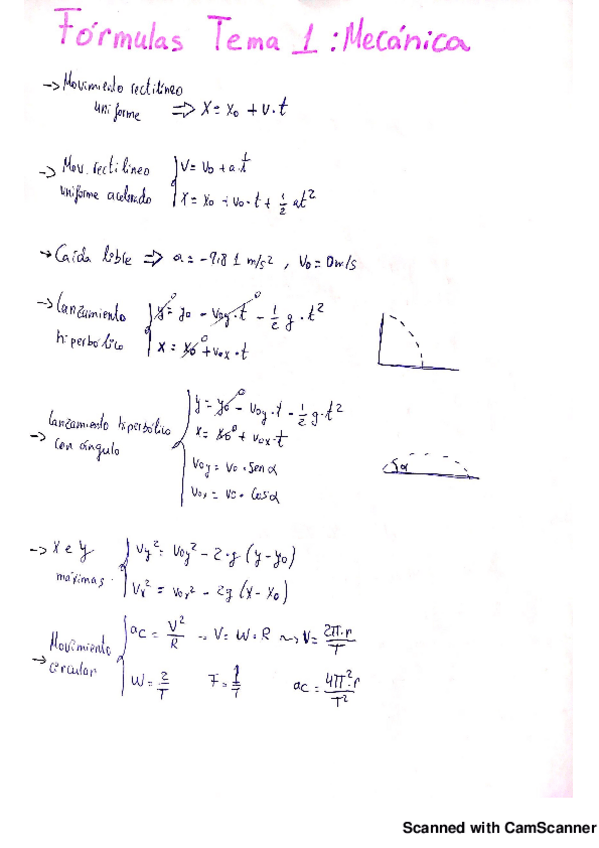 Fórmulas Tema 1: Mecánica
-> Movimiento rectilíneo
uniforme => X = X₀ + v·t
-> Mov. rectilíneo
uniforme acelerado
V = V₀ + a·t
X = X₀ + V₀·t + 1/2 at²
-> Caída => a = -9,81 m/s², V₀ = 0m/s
-> Lanzamiento
hiperbólico
y = y₀ - V₀y·t - 1/2 g·t²
0 0
x = x₀ + V₀x·t
0
-> Lanzamiento hiperbólico
con ángulo
y = y₀ - V₀y·t - 1/2 g·t²
0
x = x₀ + V₀x·t
0
V₀y = V₀·Sen α
V₀x = V₀·Cos α
α
-> X e y
máximas
Vy² = V₀y² - 2·g (y-y₀)
Vx² = V₀x² - 2g (x-x₀)
-> Movimiento
circular
ac = V²/R -> V = W·R ~> V = 2π·r/T
W = 2/T F = 1/T ac = 4π²·r/T²
Scanned with CamScanner